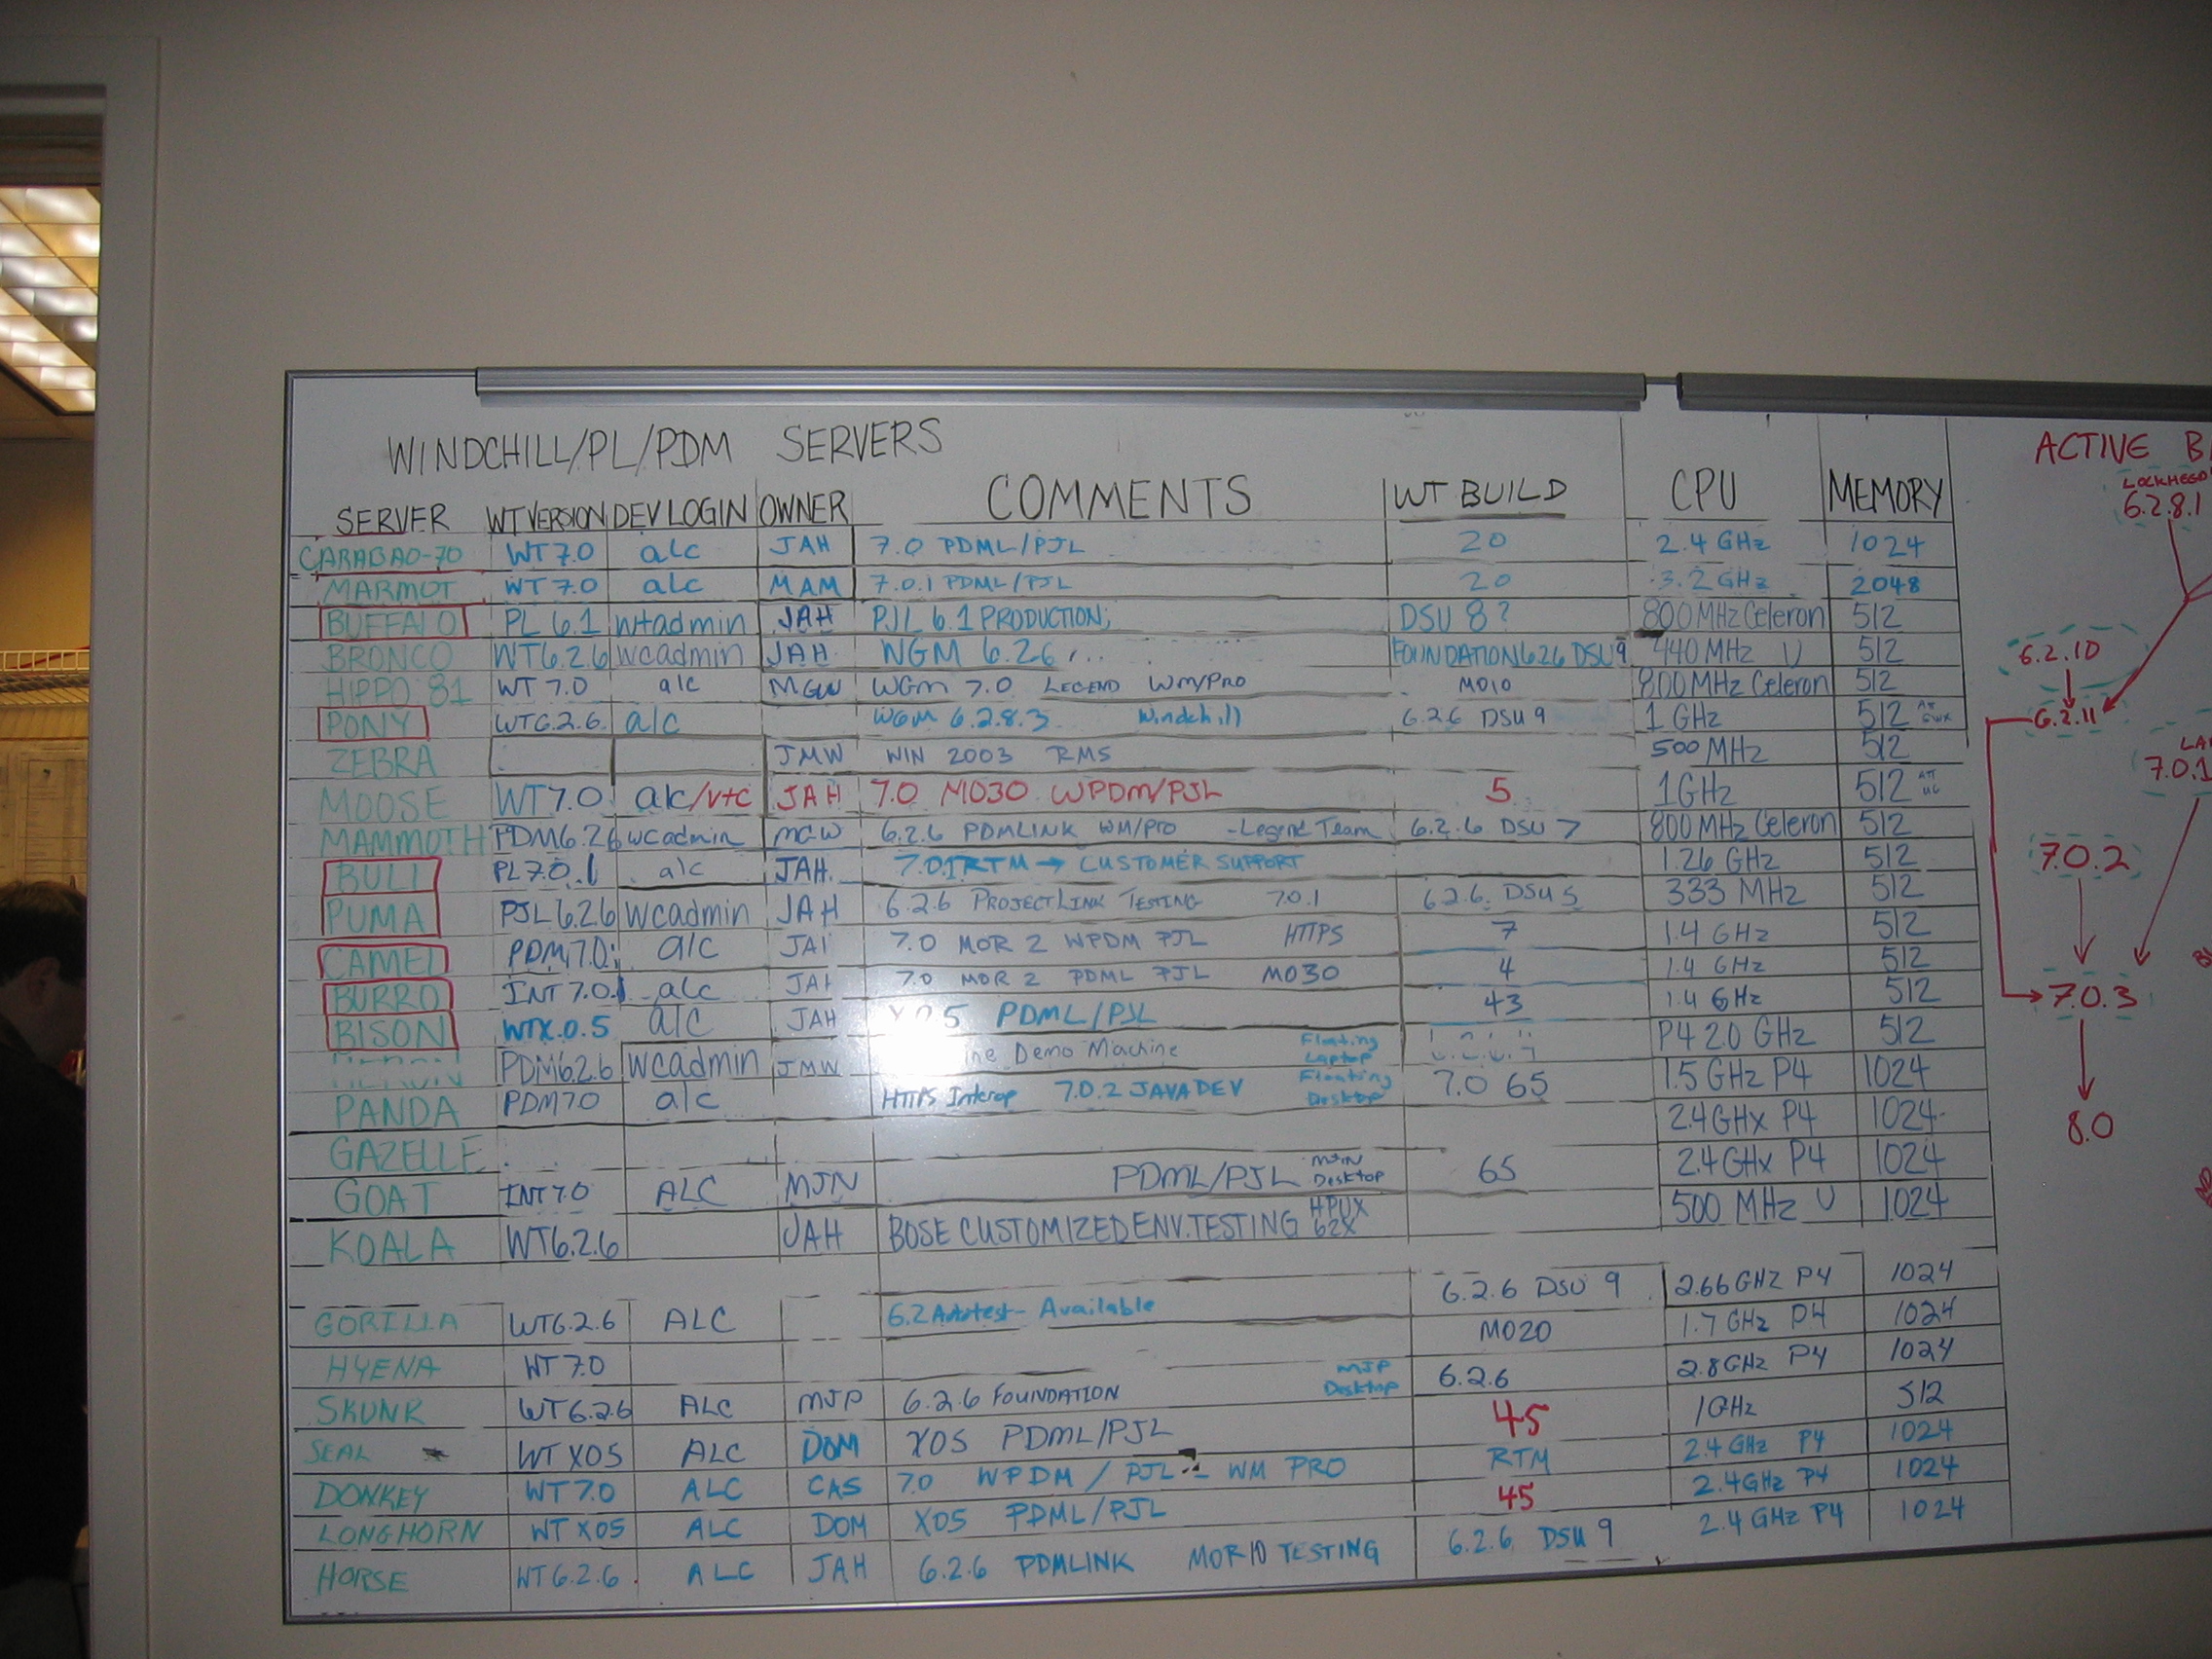 WINDCHILL/PL/PDM SERVERS
SERVER WT VERSION DEV LOGIN OWNER COMMENTS WT BUILD CPU MEMORY
CARABAO-70 WT 7.0 alc JAH 7.0 PDML/PJL 20 2.4 GHz 1024
MARMOT WT 7.0 alc MAM 7.0.1 PDML/PJL 20 3.2 GHz 2048
BUFFALO PL 6.1 wtadmin JAH PJL 6.1 PRODUCTION; DSU 8? 800 MHz Celeron 512
BRONCO WT6.2.6 wcadmin JAH WGM 6.2.6 FOUNDATION 6.2.6 DSU 9 440 MHz U 512
HIPPO 81 WT 7.0 alc MGW WGM 7.0 LEGEND WM/PRO M010 800 MHz Celeron 512
PONY WT6.2.6. alc WGM 6.2.8.3 Windchill 6.2.6 DSU 9 1 GHz 512
ZEBRA JMW WIN 2003 RMS 500 MHz 512
MOOSE WT7.0 alc/vtc JAH 7.0 M030 WPDM/PJL 5 1GHz 512
MAMMOTH PDM6.2.6 wcadmin MGW 6.2.6 PDMLINK WM/PRO -Legend Team 6.2.6 DSU 7 800 MHz Celeron 512
BULL PL7.0.1 alc JAH. 7.0.1RTM → CUSTOMER SUPPORT 1.26 GHz 512
PUMA PJL 6.2.6 wcadmin JAH 6.2.6 PROJECTLINK TESTING 7.0.1 6.2.6. DSU 5 333 MHz 512
CAMEL PDM 7.0 alc JAH 7.0 MOR 2 WPDM PJL HTTPS 7 1.4 GHz 512
BURRO INT 7.0.1 alc JAH 7.0 MOR 2 PDML PJL M030 4 1.4 GHz 512
BISON WTX.0.5 alc JAH X05 PDML/PJL 43 1.4 GHz 512
PDM6.2.6 wcadmin JMW Demo Machine Floating Laptop P4 2.0 GHz 512
PANDA PDM70 alc HTTPS Interop 7.0.2 JAVA DEV Floating Desktop 7.0 65 1.5 GHz P4 1024
GAZELLE 2.4GHx P4 1024
GOAT INT 7.0 ALC MJN PDML/PJL MJN Desktop 65 2.4GHx P4 1024
KOALA WT6.2.6 JAH BOSE CUSTOMIZED ENV. TESTING HPUX 62X 500 MHz U 1024
GORILLA WT6.2.6 ALC 6.2 Autotest - Available 6.2.6 DSU 9 2.66GHZ P4 1024
HYENA WT 7.0 M020 1.7 GHz P4 1024
SKUNK WT 6.2.6 ALC MJP 6.2.6 FOUNDATION MJP Desktop 6.2.6 2.8GHz P4 1024
SEAL WT X05 ALC DOM X05 PDML/PJL 45 1GHz 512
DONKEY WT 7.0 ALC CAS 7.0 WPDM / PJL - WM PRO RTM 2.4 GHz P4 1024
LONGHORN WT X05 ALC DOM X05 PDML/PJL 45 2.4GHz P4 1024
HORSE WT6.2.6. ALC JAH 6.2.6 PDMLINK MOR10 TESTING 6.2.6 DSU 9 2.4 GHz P4 1024
ACTIVE
6.2.8.1
6.2.10
6.2.11
7.0.1
7.0.2
7.0.3
8.0